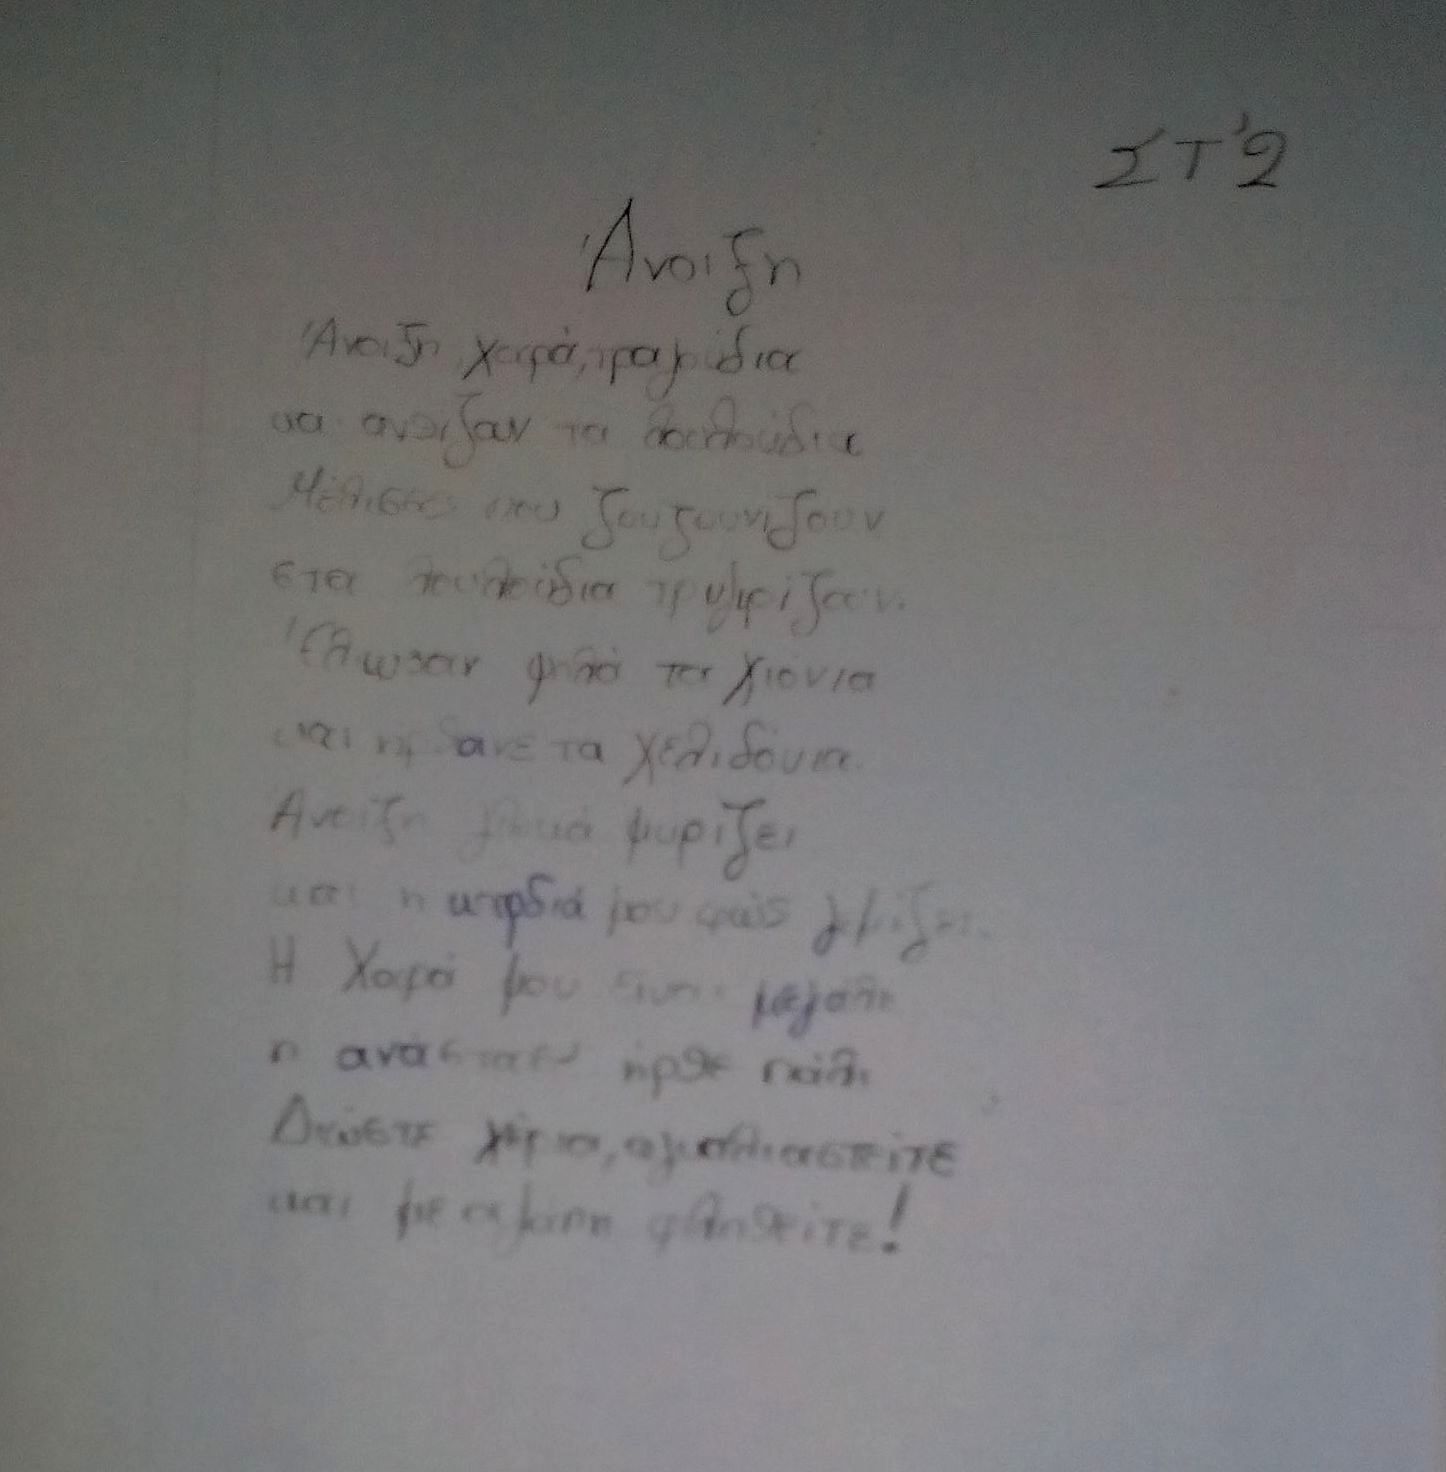 ΣΤ'2
Άνοιξη
Άνοιξη χαρά, τραγούδια
να ανθίζαν τα λουλούδια
Μέλισσες που ζουζουνίζουν
στα λουλούδια τριγυρίζουν.
Έλιωσαν ψηλά τα χιόνια
και ήρθανε τα χελιδόνια.
Άνοιξη γλυκά μυρίζει
και η καρδιά μου φως γεμίζει.
Η χαρά μου είναι μεγάλη
η ανάσταση ήρθε πάλι
Δώστε χέρια, αγκαλιαστείτε
και με αγάπη φιληθείτε!